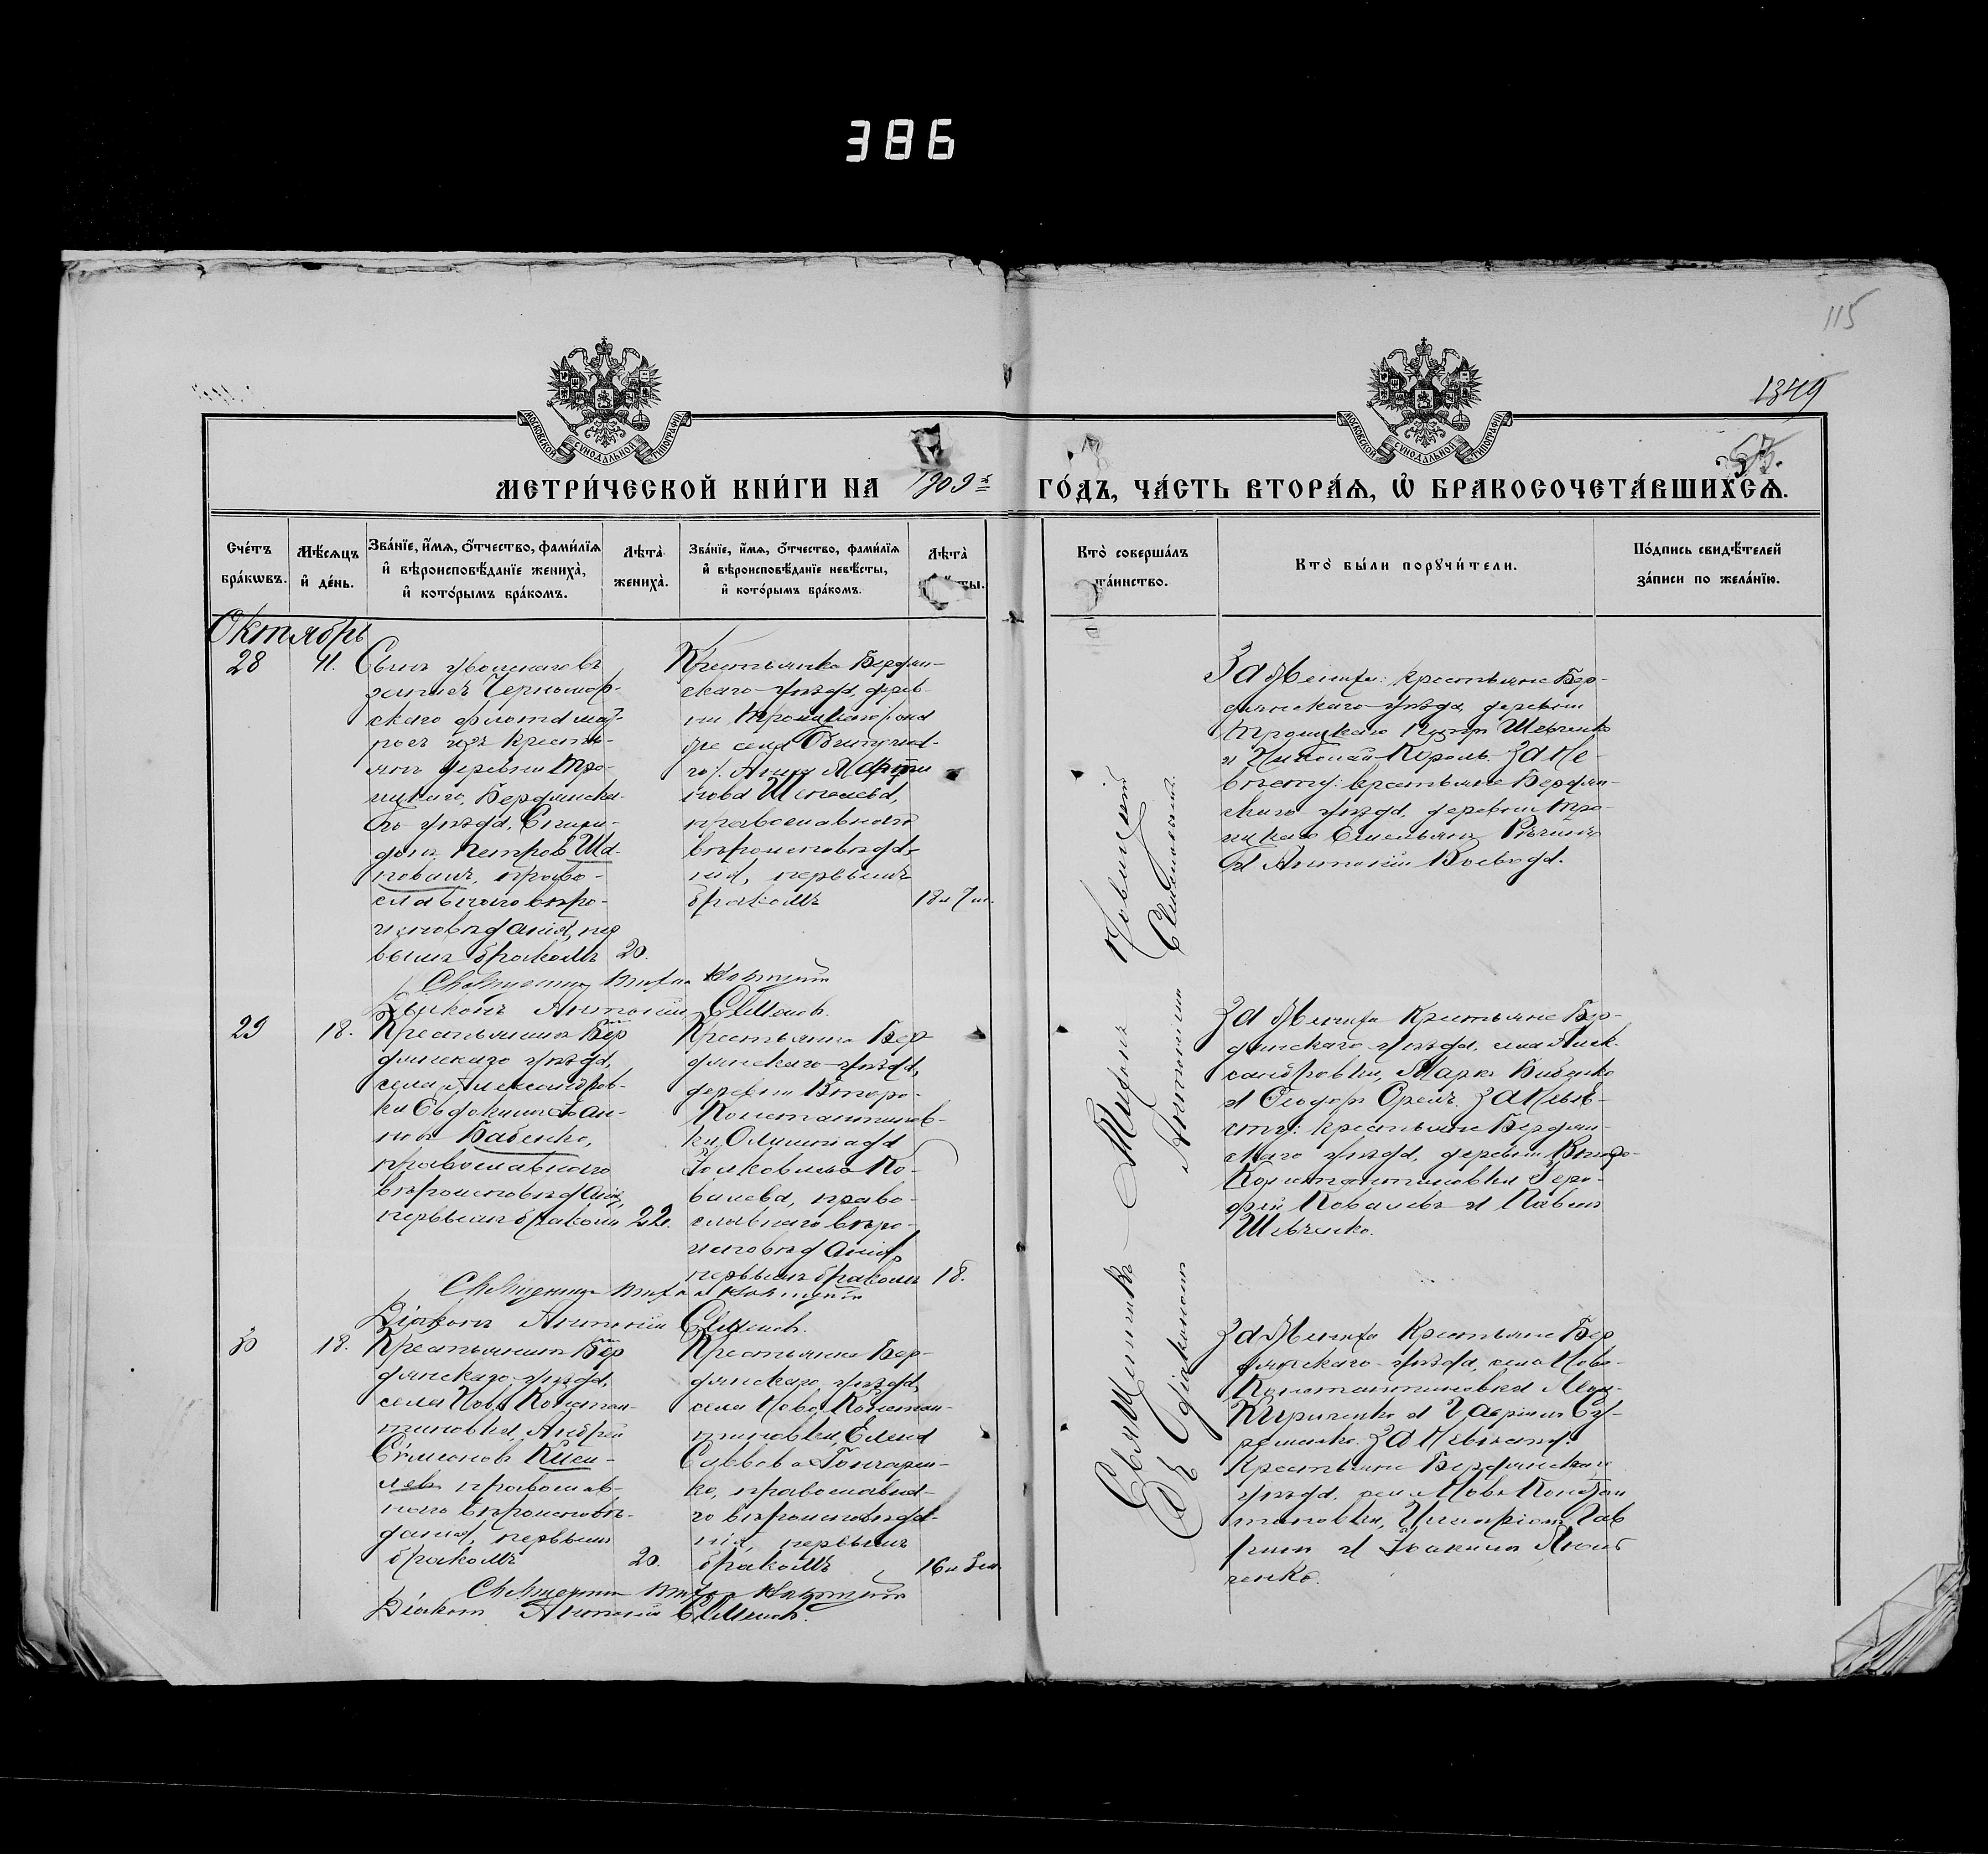 386
115
1349
57.
МОСКОВСКОЙ СѴНОДАЛЬНОЙ ТИПОГРАФІИ
МОСКОВСКОЙ СѴНОДАЛЬНОЙ ТИПОГРАФІИ
МЕТРИ́ЧЕСКОЙ КНИ́ГИ НА 1909 ГО́ДЪ, ЧА́СТЬ ВТОРА́Ѧ, Ѽ БРАКОСОЧЕТА́ВШИХСѦ.
Сче́тъ бра́кѡвъ.
Мѣ́сѧцъ и҆ де́нь.
Зва́нїе, и҆́мѧ, ѻ҆́тчество, фами́лїѧ и҆ вѣроисповѣ́данїе жениха̀, и҆ кото́рымъ бра́комъ.
Лѣта̀ жениха̀.
Зва́нїе, и҆́мѧ, ѻ҆́тчество, фами́лїѧ и҆ вѣроисповѣ́данїе невѣ́сты, и҆ кото́рымъ бра́комъ.
Лѣта̀ ты.
Кто̀ соверша́лъ та́инство.
Кто̀ бы́ли порꙋчи́тели.
По́дпись свидѣ́телей за́писи по жела́нїю.
Октябрь
28
11.
Сынъ
Черномор-
скаго флота мат-
росъ изъ крестъ-
янъ деревни Тро-
ицкаго, Бердянска-
го уѣзда, Спири-
донъ Петровъ Ша-
повалъ, право-
славнаго вѣро-
исповѣданія, пер
вымъ бракомъ
20.
Крестьянка Бердян-
скаго уѣзда, дерев-
ни Троицкаго
же села
го). Анна Марти
нова
православнаго
вѣроисповѣда-
нія, первымъ
бракомъ
18 и 7 м.
За Жениха: крестьяне Бер-
дянскаго уѣзда, деревни
Троицкаго Шевченко
и Николай Король. За Не-
вѣсту: крестьяне Бердян-
скаго уѣзда, деревни Тро-
ицкаго Емельянъ
и Антоній Воевода.
Священникъ Тихонъ Новицкій
Діаконъ Антоній Семенов.
29
18.
Крестьянинъ Бер
дянскаго уѣзда,
села Александров-
ки Евдокимъ Иван-
новъ Бабенко,
православнаго
вѣроисповѣданія,
первымъ бракомъ
22.
Крестьянка Бер-
дянскаго уѣзда,
деревни Второ-
Константинов-
ки, Олимпіада
Іаковлева Ко-
валева, право-
славнаго вѣро-
исповѣданія,
первымъ бракомъ
18.
За Жениха Крестьяне Бер-
дянскаго уѣзда, села Алек-
сандровки, Маркъ Бабенко
и Ѳеодоръ Орелъ. За Невѣ-
сту: крестьяне Бердян-
скаго уѣзда, деревни Второ-
Константиновки
Ковалевъ и Павелъ
Шевченко.
Священникъ Тихонъ Новицкій
Діаконъ Антоній Семенов.
30
18.
Крестьянинъ Бер
дянскаго уѣзда,
села Ново Констан-
тиновки, Андрей
Симеоновъ Кисе-
левъ православ-
наго вѣроисповѣ-
данія, первымъ
бракомъ
20.
Крестьянка Бер-
дянскаго уѣзда,
села Ново Констан-
тиновки, Елена
Саввова Гончарен-
ко, православна-
го вѣроисповѣда-
нія, первымъ
бракомъ
За Жениха Крестьяне Бер
дянскаго уѣзда, села Ново-
Константиновки
Кириченко и Гавріилъ
За Невѣсту:
Крестьяне Бердянскаго
уѣзда, села Ново Констан
тиновки, Иларіонъ Гав
и Іоакимъ
ченко.
Священникъ Тихонъ Новицкій
Діаконъ Антоній Семенов.
Священникъ Тихонъ Новицкій
съ діакономъ Антоніемъ Семеновымъ.